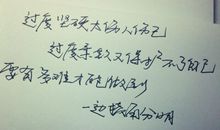 过度坚硬太伤人伤己
过度柔软又保护不了自己
要有多难才能做到
一边柔有分明